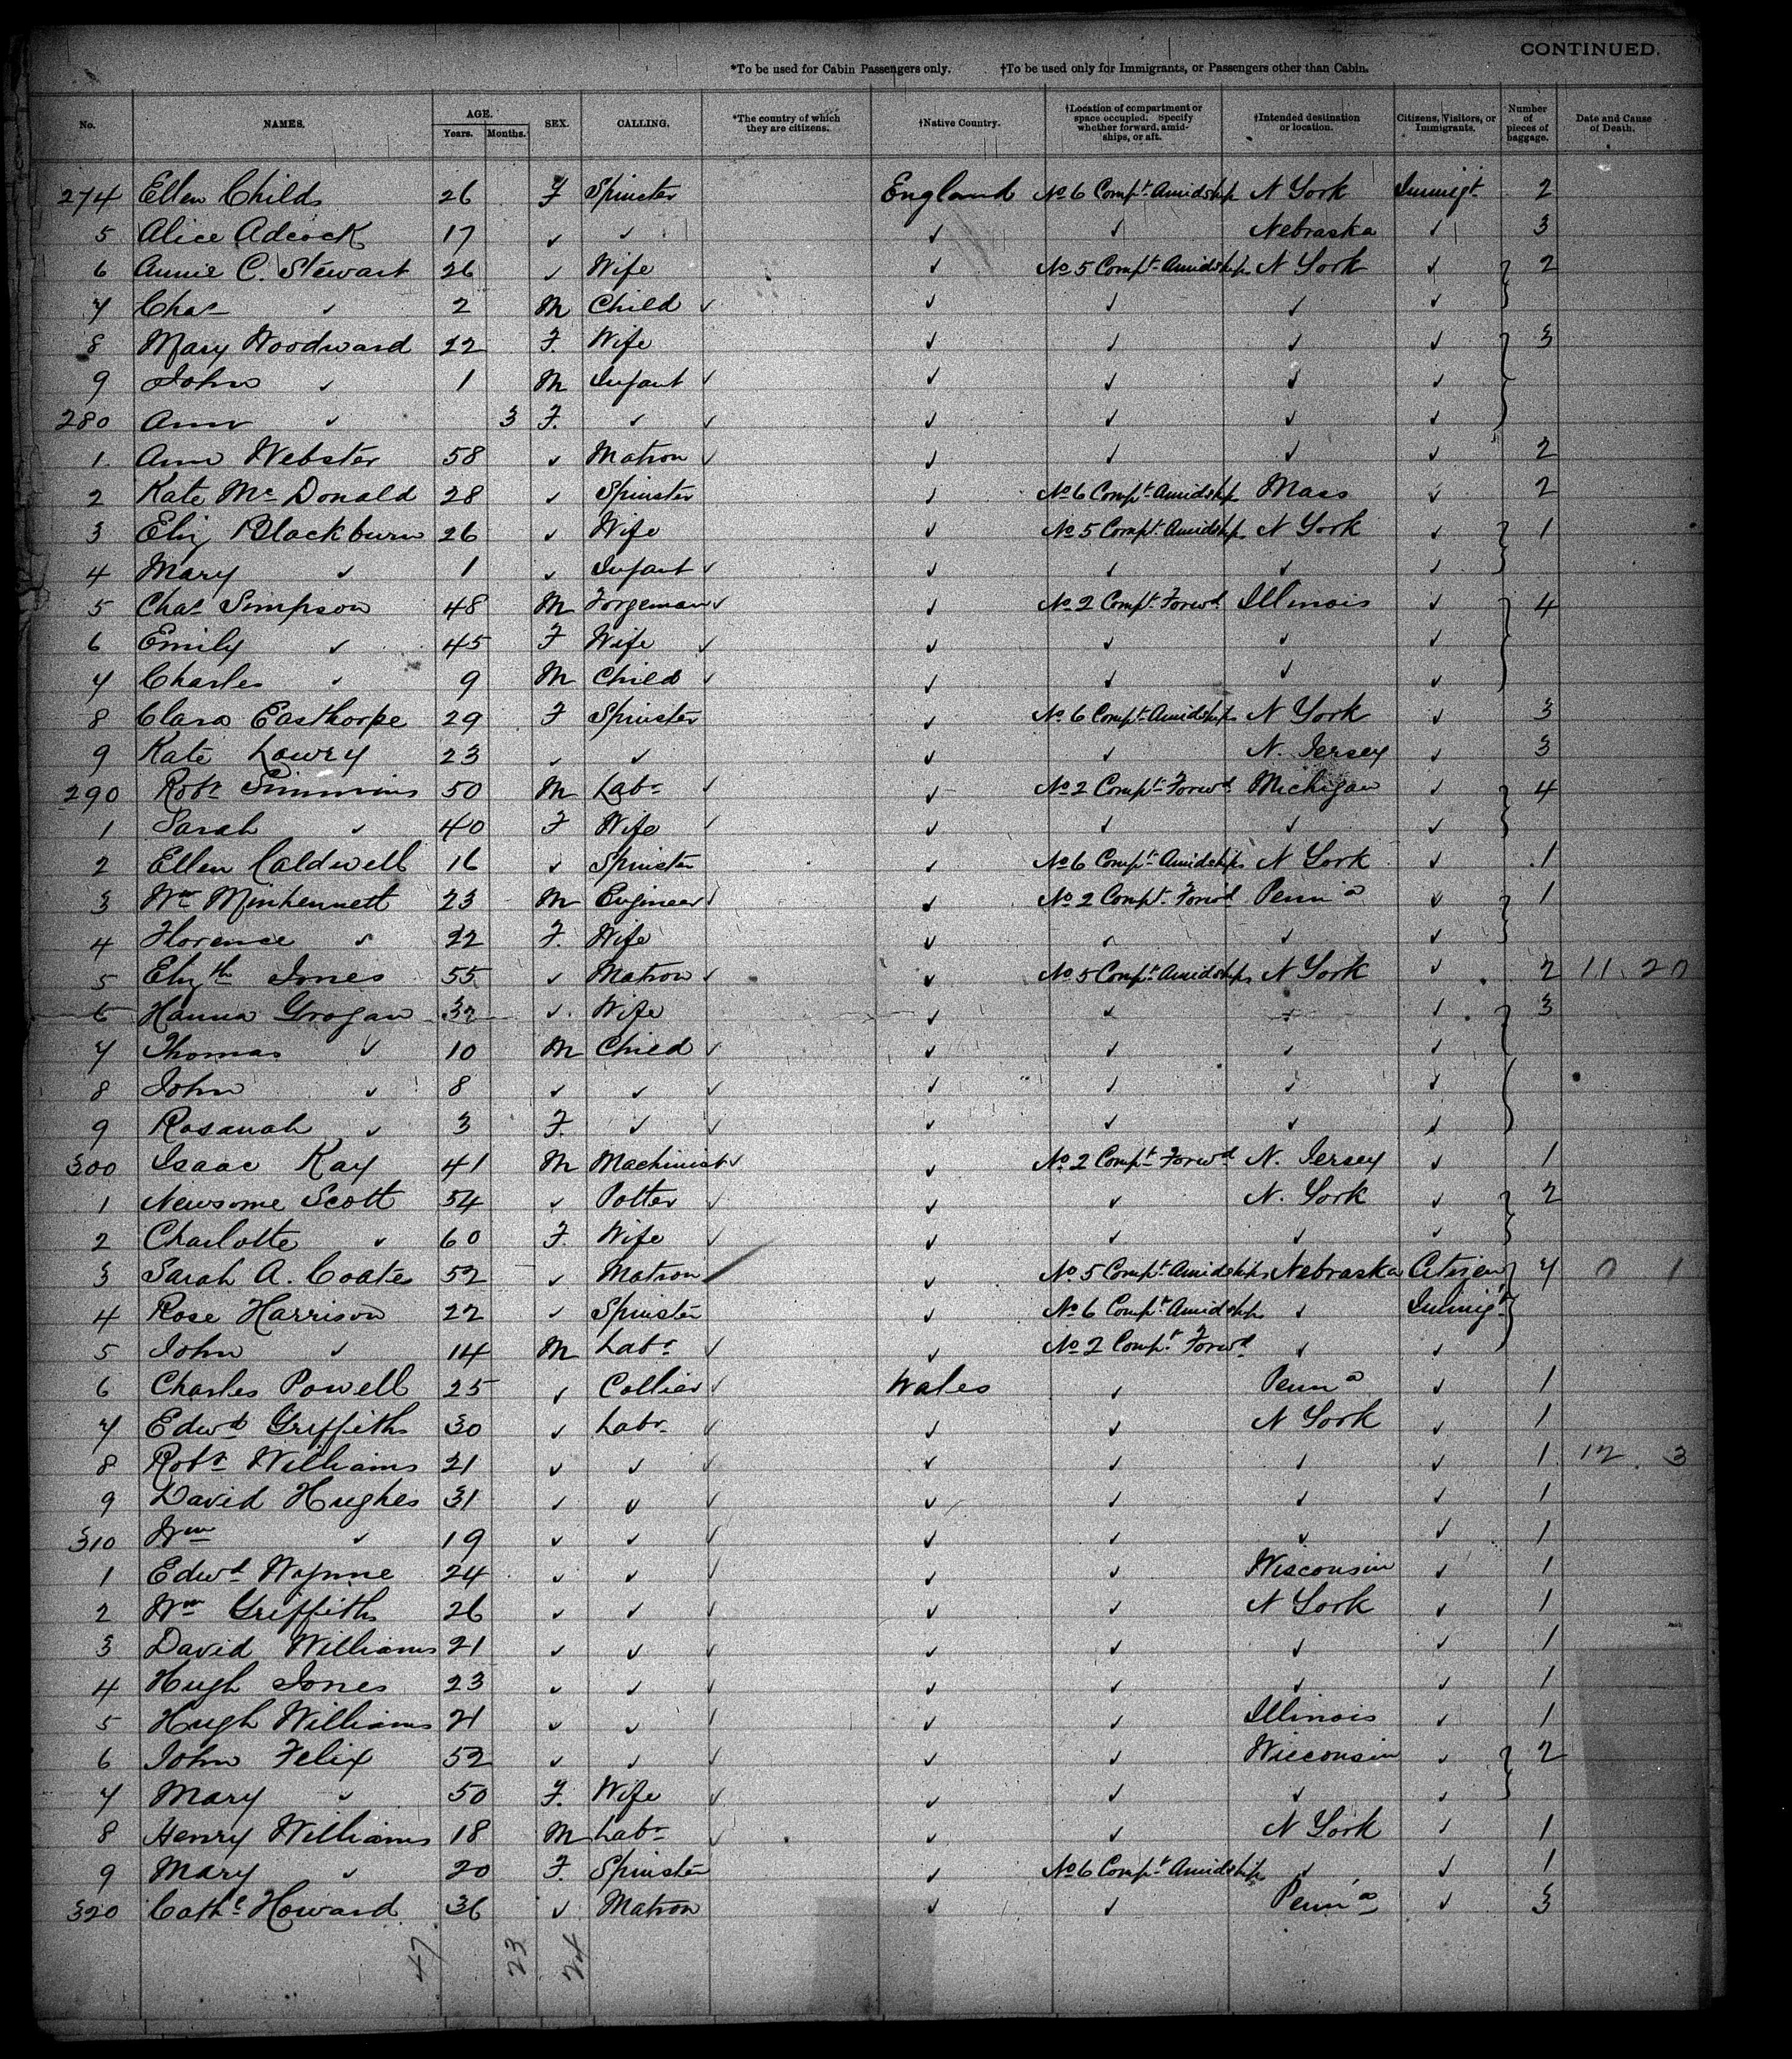 CONTINUED.
*To be used for Cabin Passengers only. †To be used only for Immigrants, or Passengers other than Cabin.
No. NAMES. AGE. Years. Months. SEX. CALLING. *The country of which they are citizens. †Native Country. †Location of compartment or space occupied. Specify whether forward, amidships, or aft. †Intended destination or location. Citizens, Visitors, or Immigrants. Number of pieces of baggage. Date and Cause of Death.
274 Ellen Childs 26 F Spinster England No 6 Compt Amidship N York Immigt 2
5 Alice Adcock 17 ✓ ✓ ✓ ✓ Nebraska ✓ 3
6 Annie C. Stewart 26 ✓ Wife ✓ No 5 Compt Amidships N York ✓ 2
7 Chas ✓ 2 M Child ✓ ✓ ✓ ✓ ✓
8 Mary Woodward 22 F. Wife ✓ ✓ ✓ ✓ 3
9 John ✓ 1 M Infant ✓ ✓ ✓ ✓ ✓
280 Ann ✓ 3 F. ✓ ✓ ✓ ✓ ✓ ✓
1. Ann Webster 58 ✓ Matron ✓ ✓ ✓ ✓ ✓ 2
2 Kate Mc Donald 28 ✓ Spinster ✓ No 6 Compt Amidship Mass ✓ 2
3 Eliz Blackburn 26 ✓ Wife ✓ No 5 Compt Amidship N York ✓ 1
4 Mary ✓ 1 ✓ Infant ✓ ✓ ✓ ✓ ✓
5 Chas Simpson 48 M Forgeman ✓ ✓ No 2 Compt Forwd Illinois ✓ 4
6 Emily ✓ 45 F Wife ✓ ✓ ✓ ✓ ✓
7 Charles ✓ 9 M Child ✓ ✓ ✓ ✓ ✓
8 Clara Easthorpe 29 F Spinster ✓ No 6 Compt Amidships N York ✓ 3
9 Kate Lowry 23 ✓ ✓ ✓ ✓ N. Jersey ✓ 3
290 Robt Simmins 50 M Labr ✓ ✓ No 2 Compt Forwd Michigan ✓ 4
1 Sarah ✓ 40 F Wife ✓ ✓ ✓ ✓ ✓
2 Ellen Caldwell 16 ✓ Spinster ✓ No 6 Compt Amidships N York ✓ 1
3 Wm Minhennett 23 M Engineer ✓ ✓ No 2 Compt Forwd Penna ✓ 1
4 Florence ✓ 22 F. Wife ✓ ✓ ✓ ✓
5 Elizth Jones 55 ✓ Matron ✓ ✓ No 5 Compt Amidships N York ✓ 2 11. 20
6 Hanna Grogan 32 ✓ Wife ✓ ✓ ✓ ✓ 3
7 Thomas ✓ 10 M Child ✓ ✓ ✓ ✓ ✓
8 John ✓ 8 ✓ ✓ ✓ ✓ ✓ ✓ ✓
9 Rosanah ✓ 3 F. ✓ ✓ ✓ ✓ ✓ ✓
300 Isaac Kay 41 M Machinist ✓ ✓ No 2 Compt Forwd N. Jersey ✓ 1
1 Newsome Scott 54 ✓ Potter ✓ ✓ ✓ N. York ✓ 2
2 Charlotte ✓ 60 F. Wife ✓ ✓ ✓ ✓ ✓
3 Sarah A. Coates 52 ✓ Matron ✓ No 5 Compt Amidships Nebraska Citizen 4 0 1
4 Rose Harrison 22 ✓ Spinster ✓ No 6 Compt Amidship ✓ Immigt
5 John ✓ 14 M Labr ✓ ✓ No 2 Compt Forwd ✓ ✓
6 Charles Powell 25 ✓ Collier ✓ Wales ✓ Penna ✓ 1
7 Edwd Griffiths 30 ✓ Labr ✓ ✓ ✓ N York ✓ 1
8 Robt Williams 21 ✓ ✓ ✓ ✓ ✓ ✓ ✓ 1 12. 3
9 David Hughes 31 ✓ ✓ ✓ ✓ ✓ ✓ ✓ 1
310 Wm ✓ 19 ✓ ✓ ✓ ✓ ✓ ✓ ✓ 1
1 Edwd Wynne 24 ✓ ✓ ✓ ✓ ✓ Wisconsin ✓ 1
2 Wm Griffiths 26 ✓ ✓ ✓ ✓ ✓ N York ✓ 1
3 David Williams 21 ✓ ✓ ✓ ✓ ✓ ✓ ✓ 1
4 Hugh Jones 23 ✓ ✓ ✓ ✓ ✓ ✓ ✓ 1
5 Hugh Williams 21 ✓ ✓ ✓ ✓ ✓ Illinois ✓ 1
6 John Felix 52 ✓ ✓ ✓ ✓ ✓ Wisconsin ✓ 2
7 Mary ✓ 50 F. Wife ✓ ✓ ✓ ✓ ✓
8 Henry Williams 18 M Labr ✓ ✓ ✓ N York ✓ 1
9 Mary ✓ 20 F. Spinster ✓ No 6 Compt Amidships ✓ ✓ 1
320 Cathe Howard 36 ✓ Matron ✓ ✓ Penna ✓ 3
47 23 24